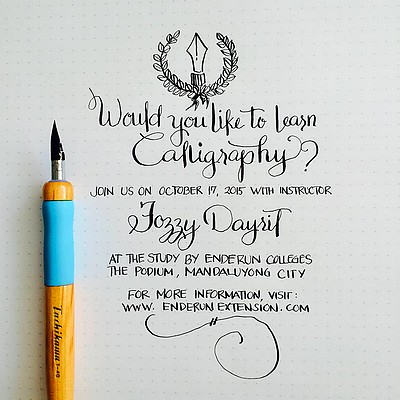 Would you like to learn
Calligraphy?
JOIN US ON OCTOBER 17, 2015 WITH INSTRUCTOR
Fozzy Dayrit
AT THE STUDY BY ENDERUN COLLEGES
THE PODIUM, MANDALUYONG CITY
FOR MORE INFORMATION, VISIT:
WWW. ENDERUN EXTENSION. COM
Tachikawa T-40